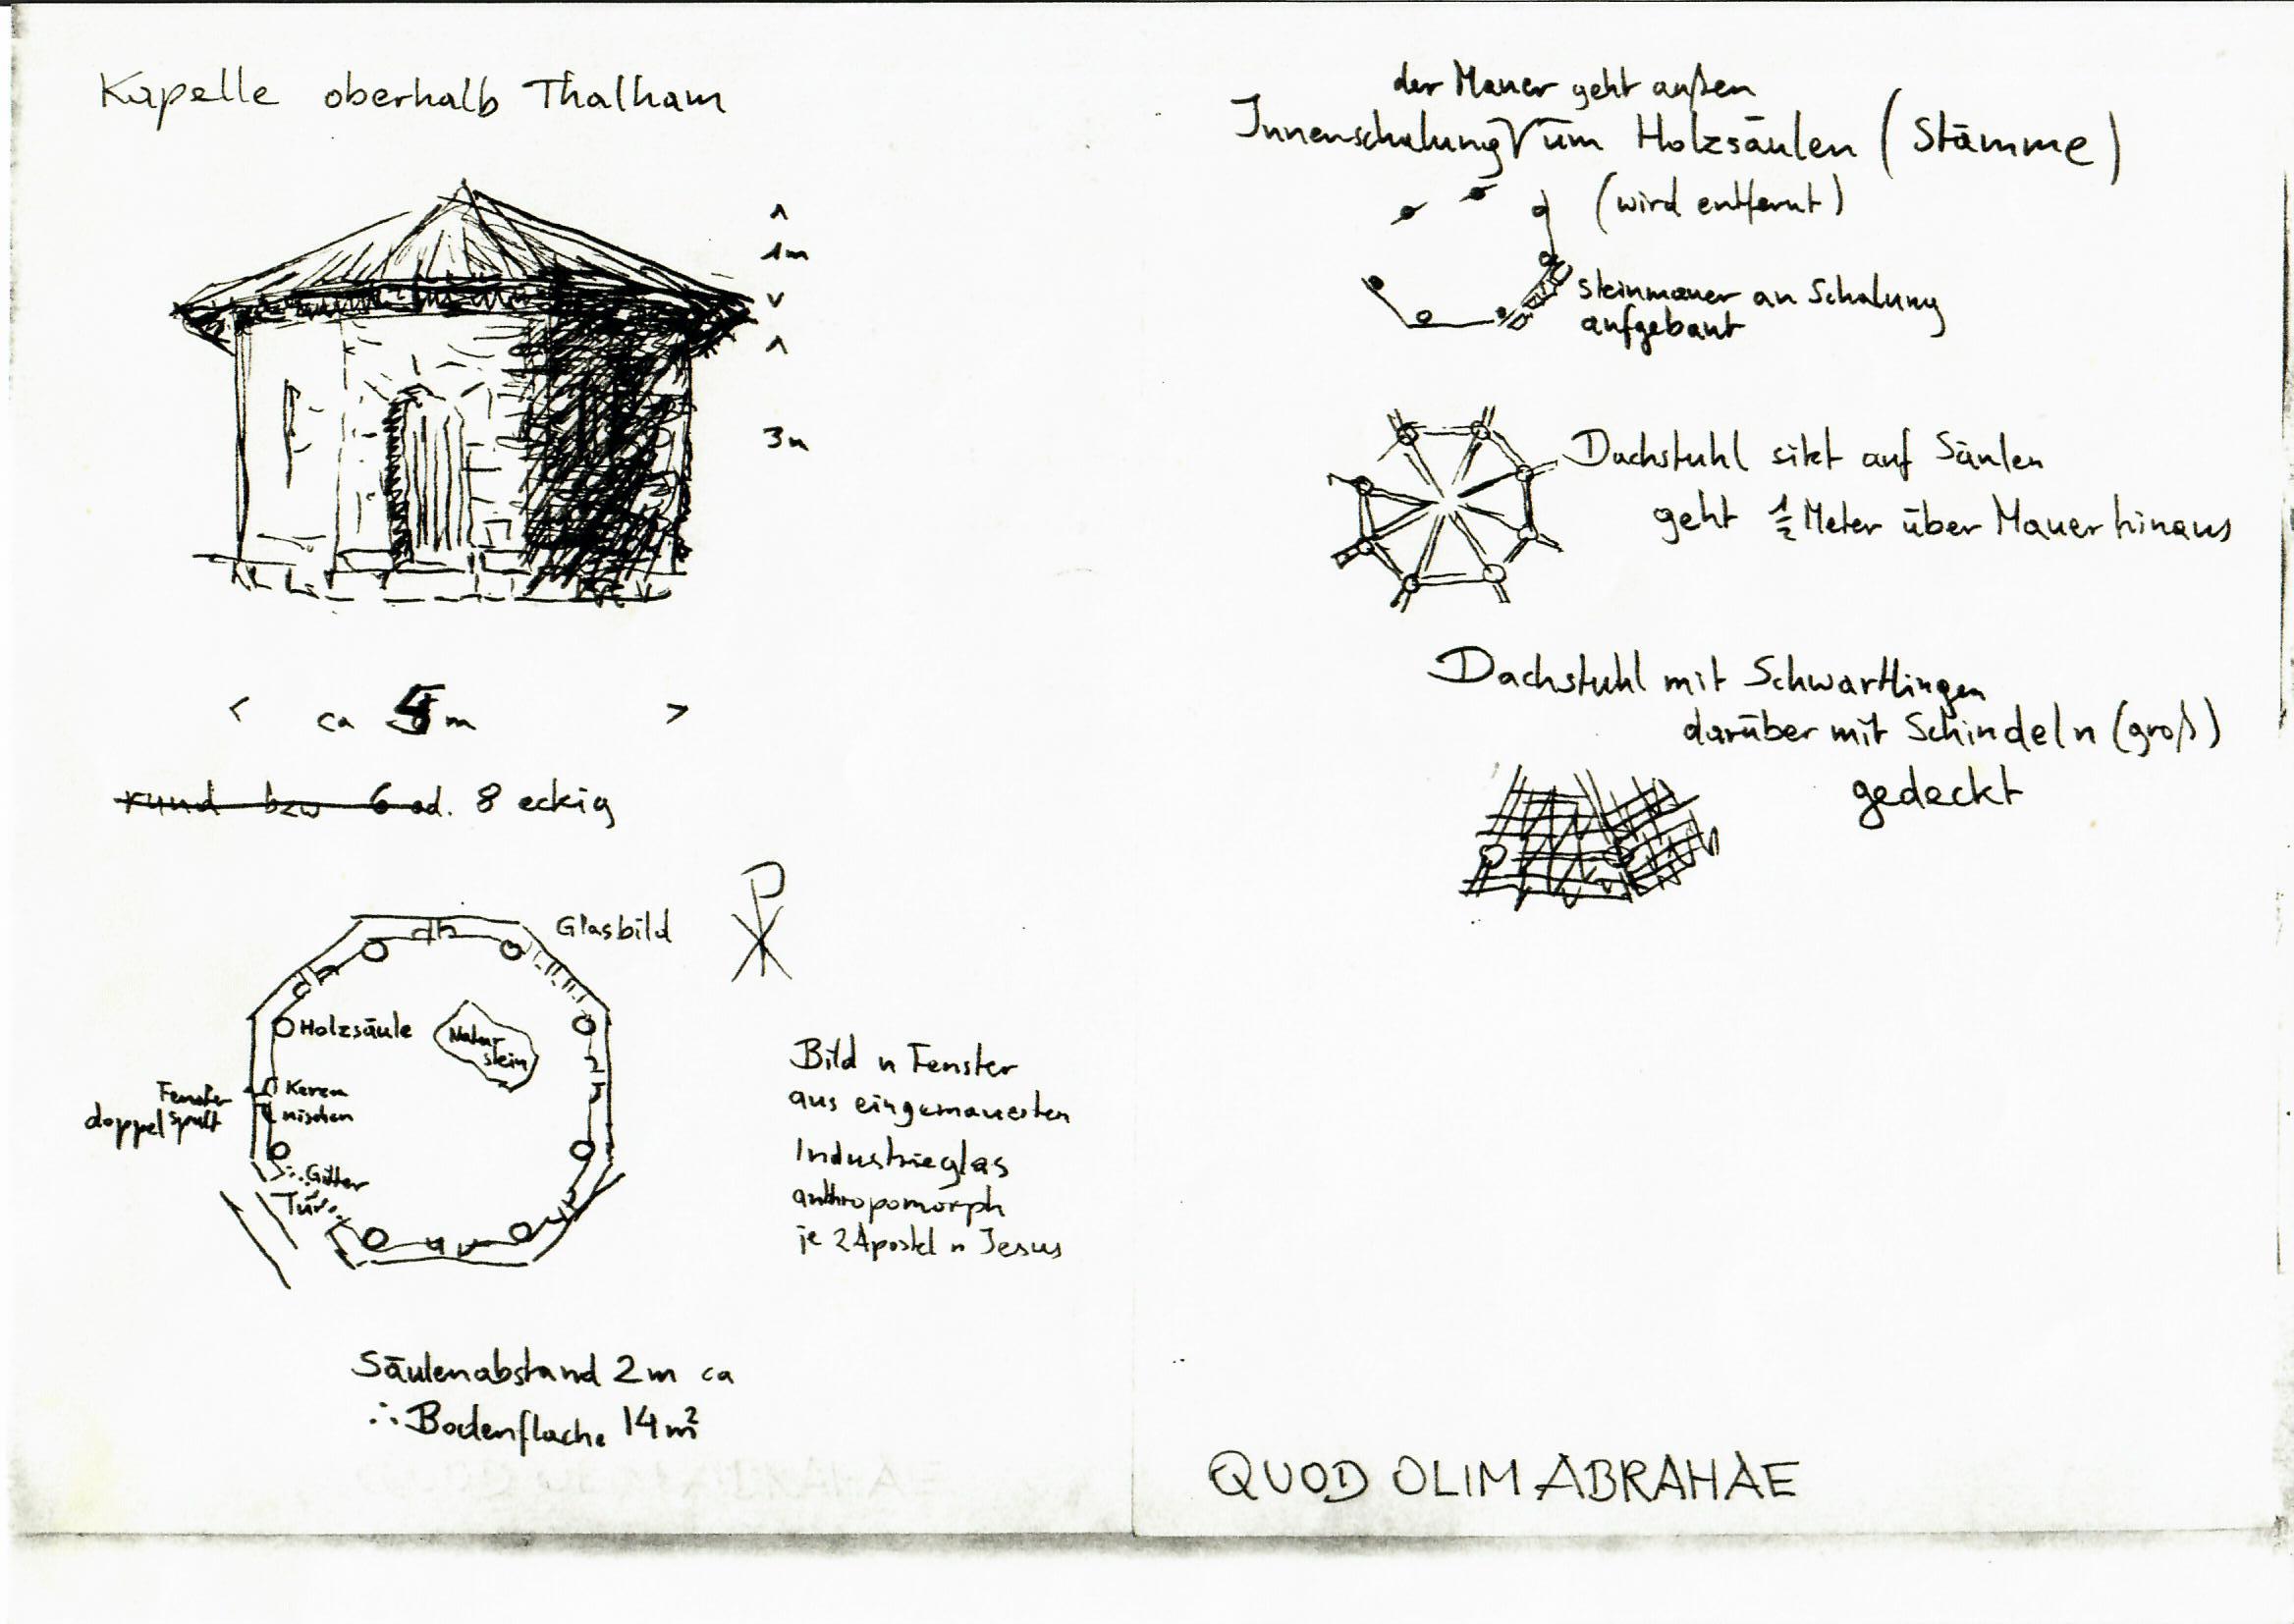 Kapelle oberhalb Thalham
1m
3m
ca 5 m
rund bzw 6 od. 8 eckig
Glasbild
Holzsäule
Natur-
stein
Fenster
doppelspalt
Kerzen
nischen
Gitter
Tür
Bild u Fenster
aus eingemauerten
Industrieglas
anthropomorph
je 2 Apostel u Jesus
Säulenabstand 2m ca
∴ Bodenfläche 14 m²
der Mauer geht außen
Innenschalung √ um Holzsäulen (Stämme)
(wird entfernt)
Steinmauer an Schalung
aufgebaut
Dachstuhl sitzt auf Säulen
geht ½ Meter über Mauer hinaus
Dachstuhl mit Schwartlingen
darüber mit Schindeln (groß)
gedeckt
QUOD OLIM ABRAHAE